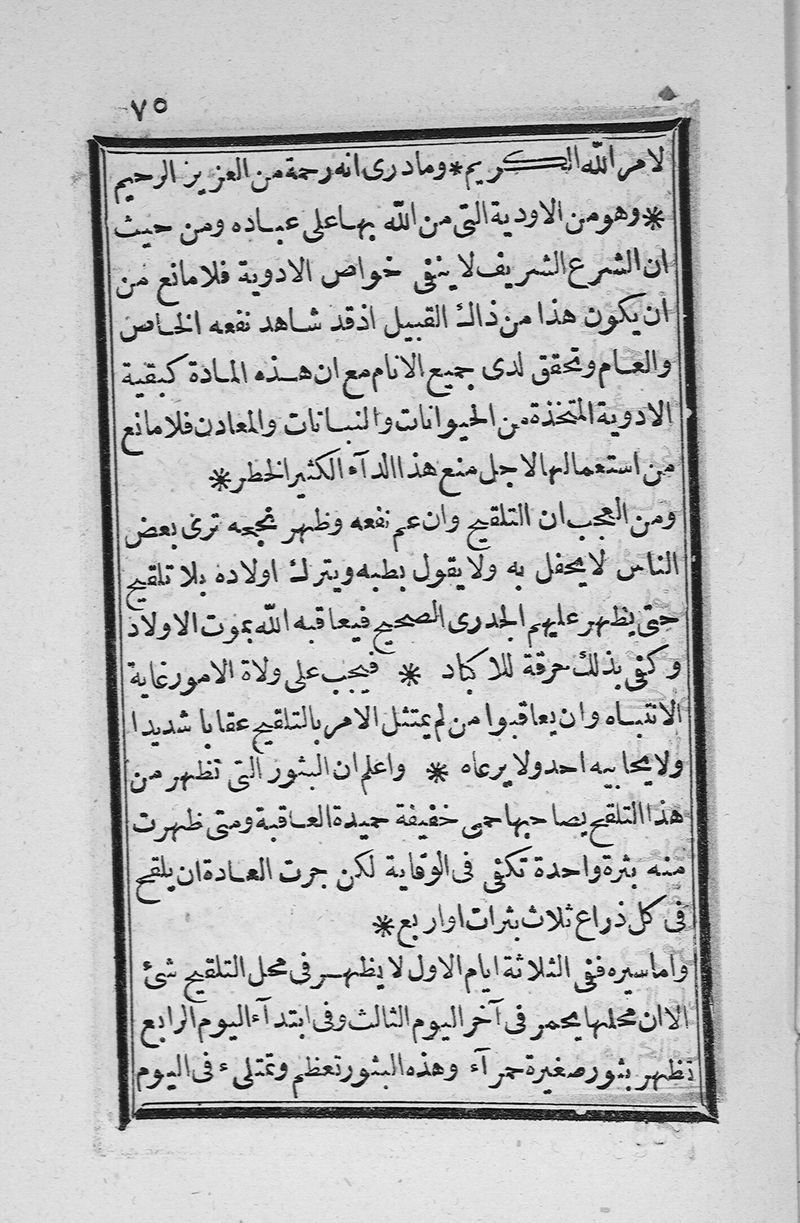 ٧٥
لامر الله الكريم * ومادرى انه رحمة من العزيز الرحيم
* وهو من الاودية التى من الله بها على عباده ومن حيث
ان الشرع الشريف لا ينفى خواص الادوية فلا مانع من
ان يكون هذا من ذاك القبيل اذ قد شاهد نفعه الخاص
والعام وتحقق لدى جميع الانام مع ان هذه المادة كبقية
الادوية المتخذة من الحيوانات والنباتات والمعادن فلا مانع
من استعمالها لاجل منع هذا الدآء الكثير الخطر *
ومن العجب ان التلقيح وان عم نفعه وظهر نجحه ترى بعض
الناس لا يحفل به ولا يقول بطبه ويترك اولاده بلا تلقيح
حتى يظهر عليهم الجدرى الصحيح فيعاقبه الله بموت الاولاد
وكفى بذلك حرقة للاكباد * فيجب على ولاة الامور غاية
الانتباه وان يعاقبوا من لم يمتثل الامر بالتلقيح عقابا شديدا
ولا يحابيه احد ولا يرعاه * واعلم ان البثور التى تظهر من
هذا التلقيح يصاحبها حمى خفيفة حميدة العاقبة ومتى ظهرت
منه بثرة واحدة تكفى فى الوقاية لكن جرت العادة ان يلقح
فى كل ذراع ثلاث بثرات او اربع *
واما سيره ففى الثلاثة ايام الاول لا يظهر فى محل التلقيح شئ
الا ان محلها يحمر فى آخر اليوم الثالث وفى ابتدآء اليوم الرابع
تظهر بثور صغيرة حمرآء وهذه البثور تعظم وتمتلىء فى اليوم